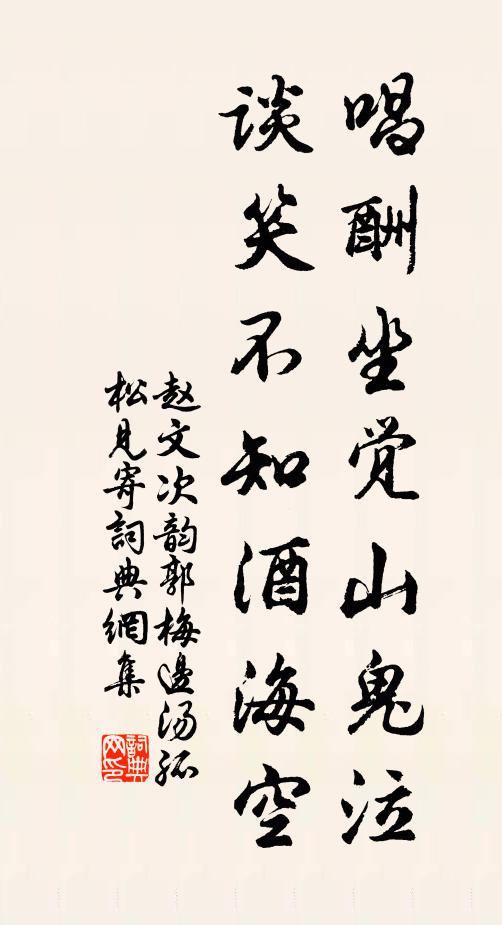 唱酬坐觉山鬼泣
谈笑不知酒海空
赵文次韵郭梅邊汤孤
松見寄詞典網集
詞典
网印